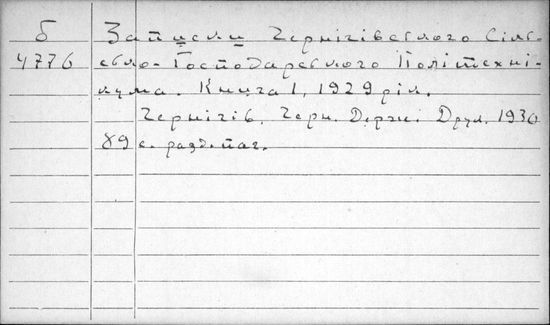 Б
4776
Записки Чернігівського Сільсь-
сько-Господарського Політехні-
кума. Книга 1, 1929 рік.
Чернігів, Черн. Держ. Друк. 1930
89 с. разд. паг.